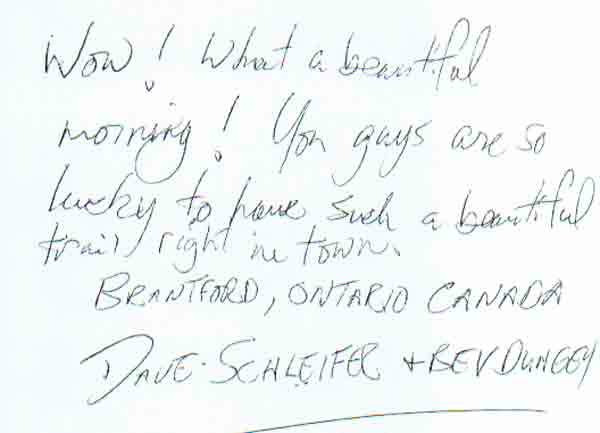 Wow! What a beautiful
morning! You guys are so
lucky to have such a beautiful
trail right in town.
BRANTFORD, ONTARIO CANADA
DAVE SCHLEIFER + BEV DUNGEY